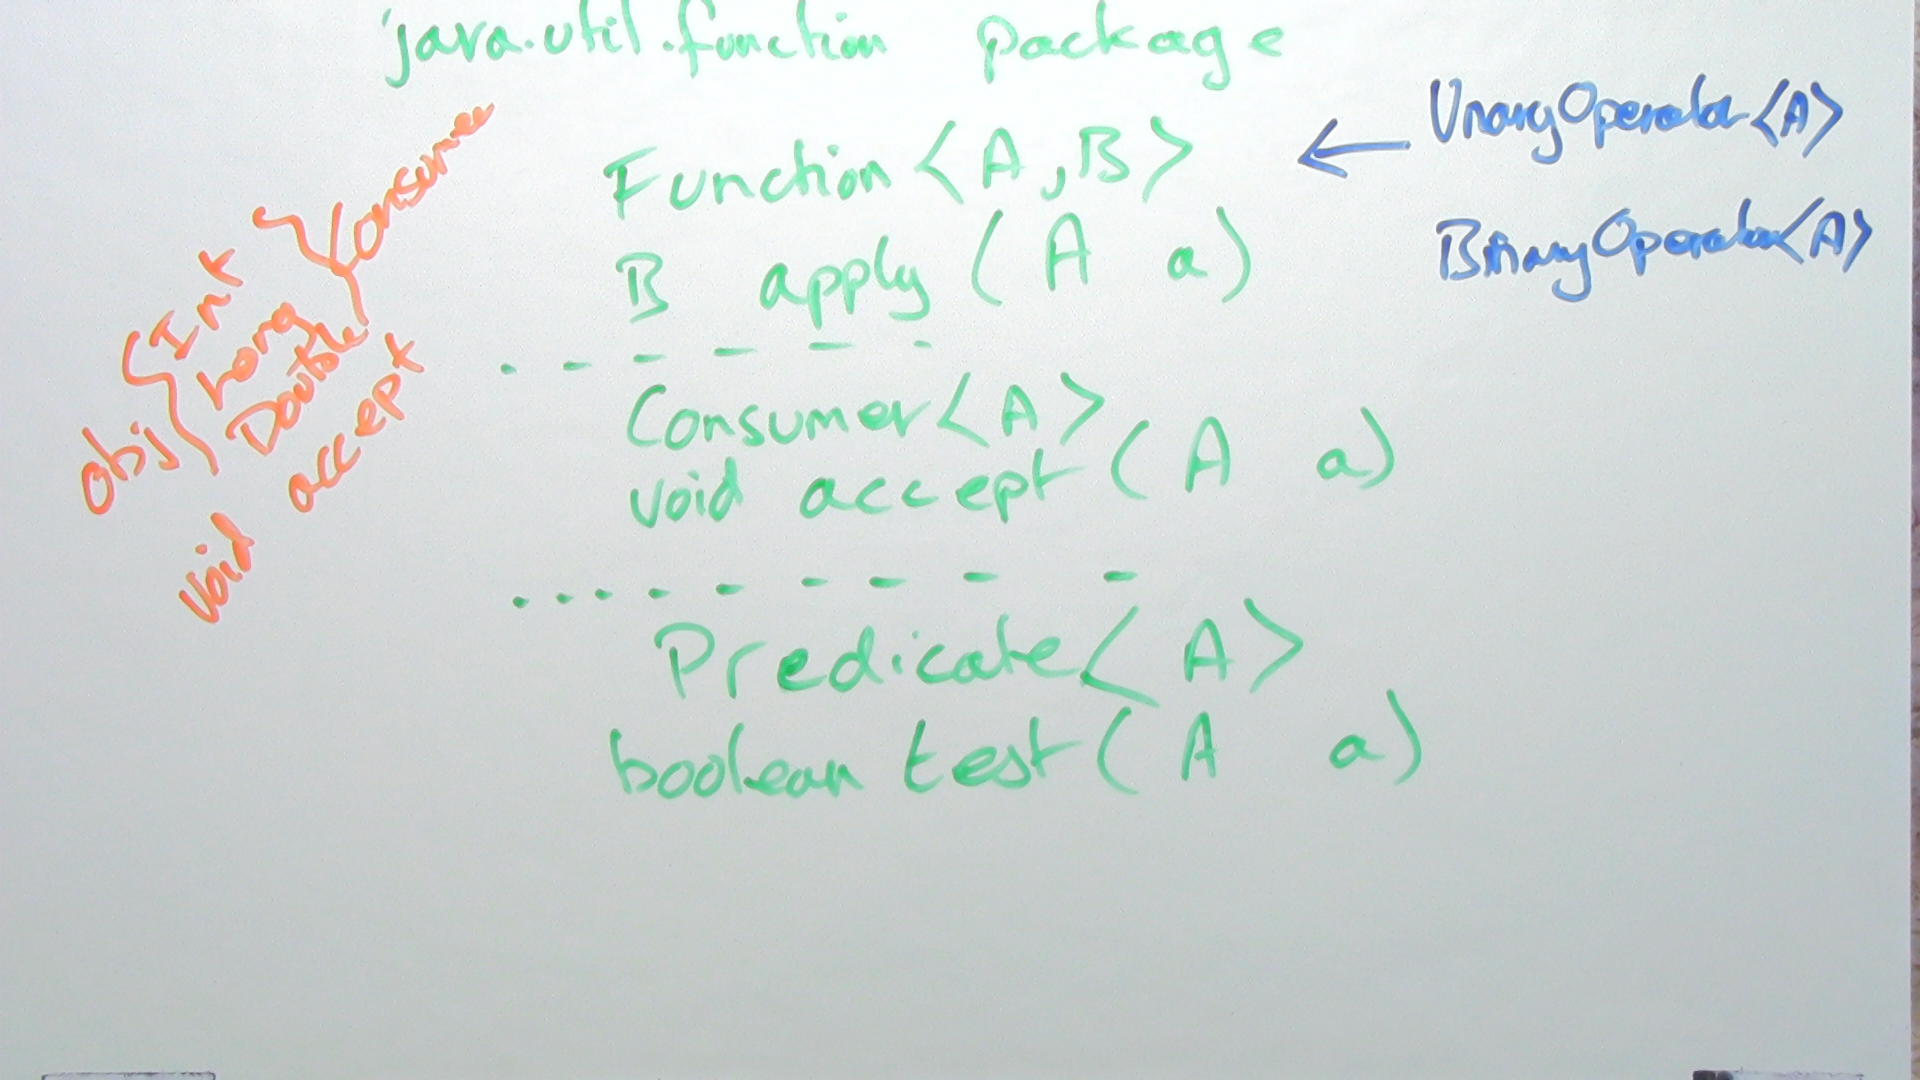 java.util.function package
Function<A,B>
B apply (A a)
Consumer<A>
void accept (A a)
Predicate<A>
boolean test (A a)
UnaryOperator<A>
BinaryOperator<A>
obj { Int Long Double } Consumer
void accept